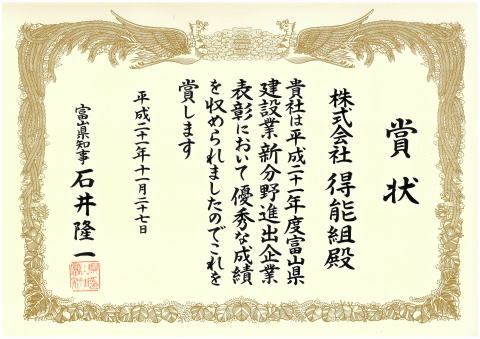 賞状
株式会社 得能組殿
貴社は平成二十一年度富山県
建設業新分野進出企業
表彰において優秀な成績
を収められましたのでこれを
賞します
平成二十一年十一月二十七日
富山県知事 石井隆一